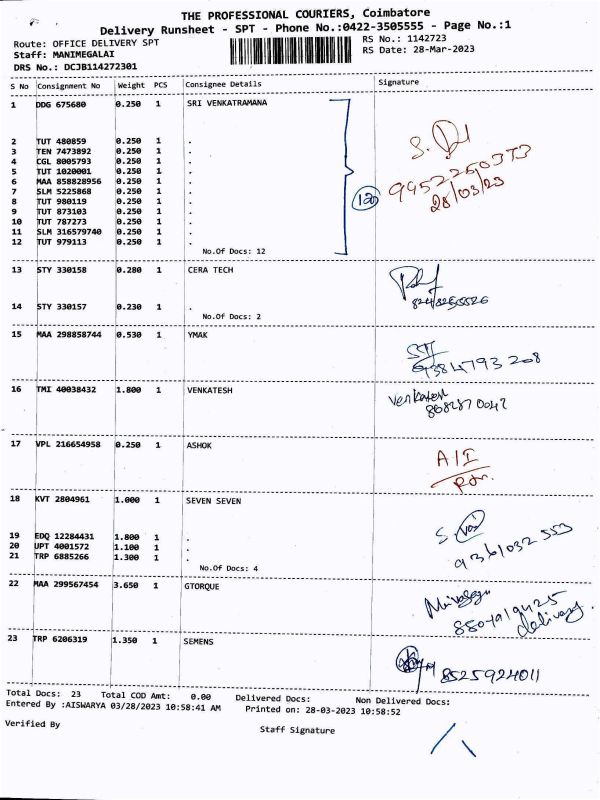 THE PROFESSIONAL COURIERS, Coimbatore
Delivery Runsheet - SPT - Phone No.:0422-3505555 - Page No.:1
Route: OFFICE DELIVERY SPT RS No.: 1142723
Staff: MANIMEGALAI RS Date: 28-Mar-2023
DRS No.: DCJB114272301
S No Consignment No Weight PCS Consignee Details Signature
1 DDG 675680 0.250 1 SRI VENKATRAMANA
2 TUT 480859 0.250 1 .
3 TEN 7473892 0.250 1 .
4 CGL 8005793 0.250 1 .
5 TUT 1020001 0.250 1 .
6 MAA 858828956 0.250 1 .
7 SLM 5225868 0.250 1 .
8 TUT 980119 0.250 1 .
9 TUT 873103 0.250 1 .
10 TUT 787273 0.250 1 .
11 SLM 316579740 0.250 1 .
12 TUT 979113 0.250 1 .
No.Of Docs: 12
28/03/23
13 STY 330158 0.280 1 CERA TECH
14 STY 330157 0.230 1 .
No.Of Docs: 2
15 MAA 298858744 0.530 1 YMAK
9384793208
16 TMI 40038432 1.800 1 VENKATESH
Venkatesh
17 VPL 216654958 0.250 1 ASHOK
A/I
18 KVT 2804961 1.000 1 SEVEN SEVEN
19 EDQ 12284431 1.800 1 .
20 UPT 4001572 1.100 1 .
21 TRP 6885266 1.300 1 .
No.Of Docs: 4
9361032553
22 MAA 299567454 3.650 1 GTORQUE
delivery
23 TRP 6206319 1.350 1 SEMENS
8525924011
Total Docs: 23 Total COD Amt: 0.00 Delivered Docs: Non Delivered Docs:
Entered By :AISWARYA 03/28/2023 10:58:41 AM Printed on: 28-03-2023 10:58:52
Verified By Staff Signature